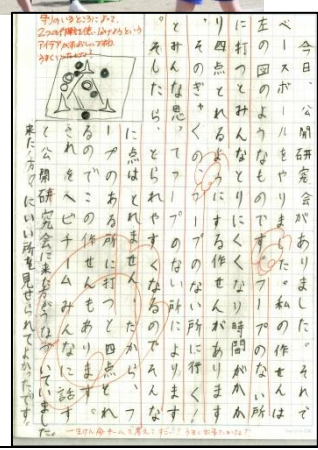 今日、公開研究会がありました。それで
ベースボールをやりました。私の作せんは
左の図のようなものです。フープのない所
に打つとみんなとりにくくなり時間がかか
り四点とれるようにする作せんがあります
。そのぎゃくのフープのない所に行く！
とみんな思ってフープのない所によります
。そしたら、とられやすくなるのでそんな
に点はとれません。だから、フ
ープのある所に打つと四点とれ
るのでこの作せんもあります。
それをヘビチームみんなに話す
と公開研究会に来た方がうなづいていました。
来た方々にいい所を見せられてよかったです。
守りのいるところによって、
2つの作戦を使い分けようという
アイデアがおもしろいですね。